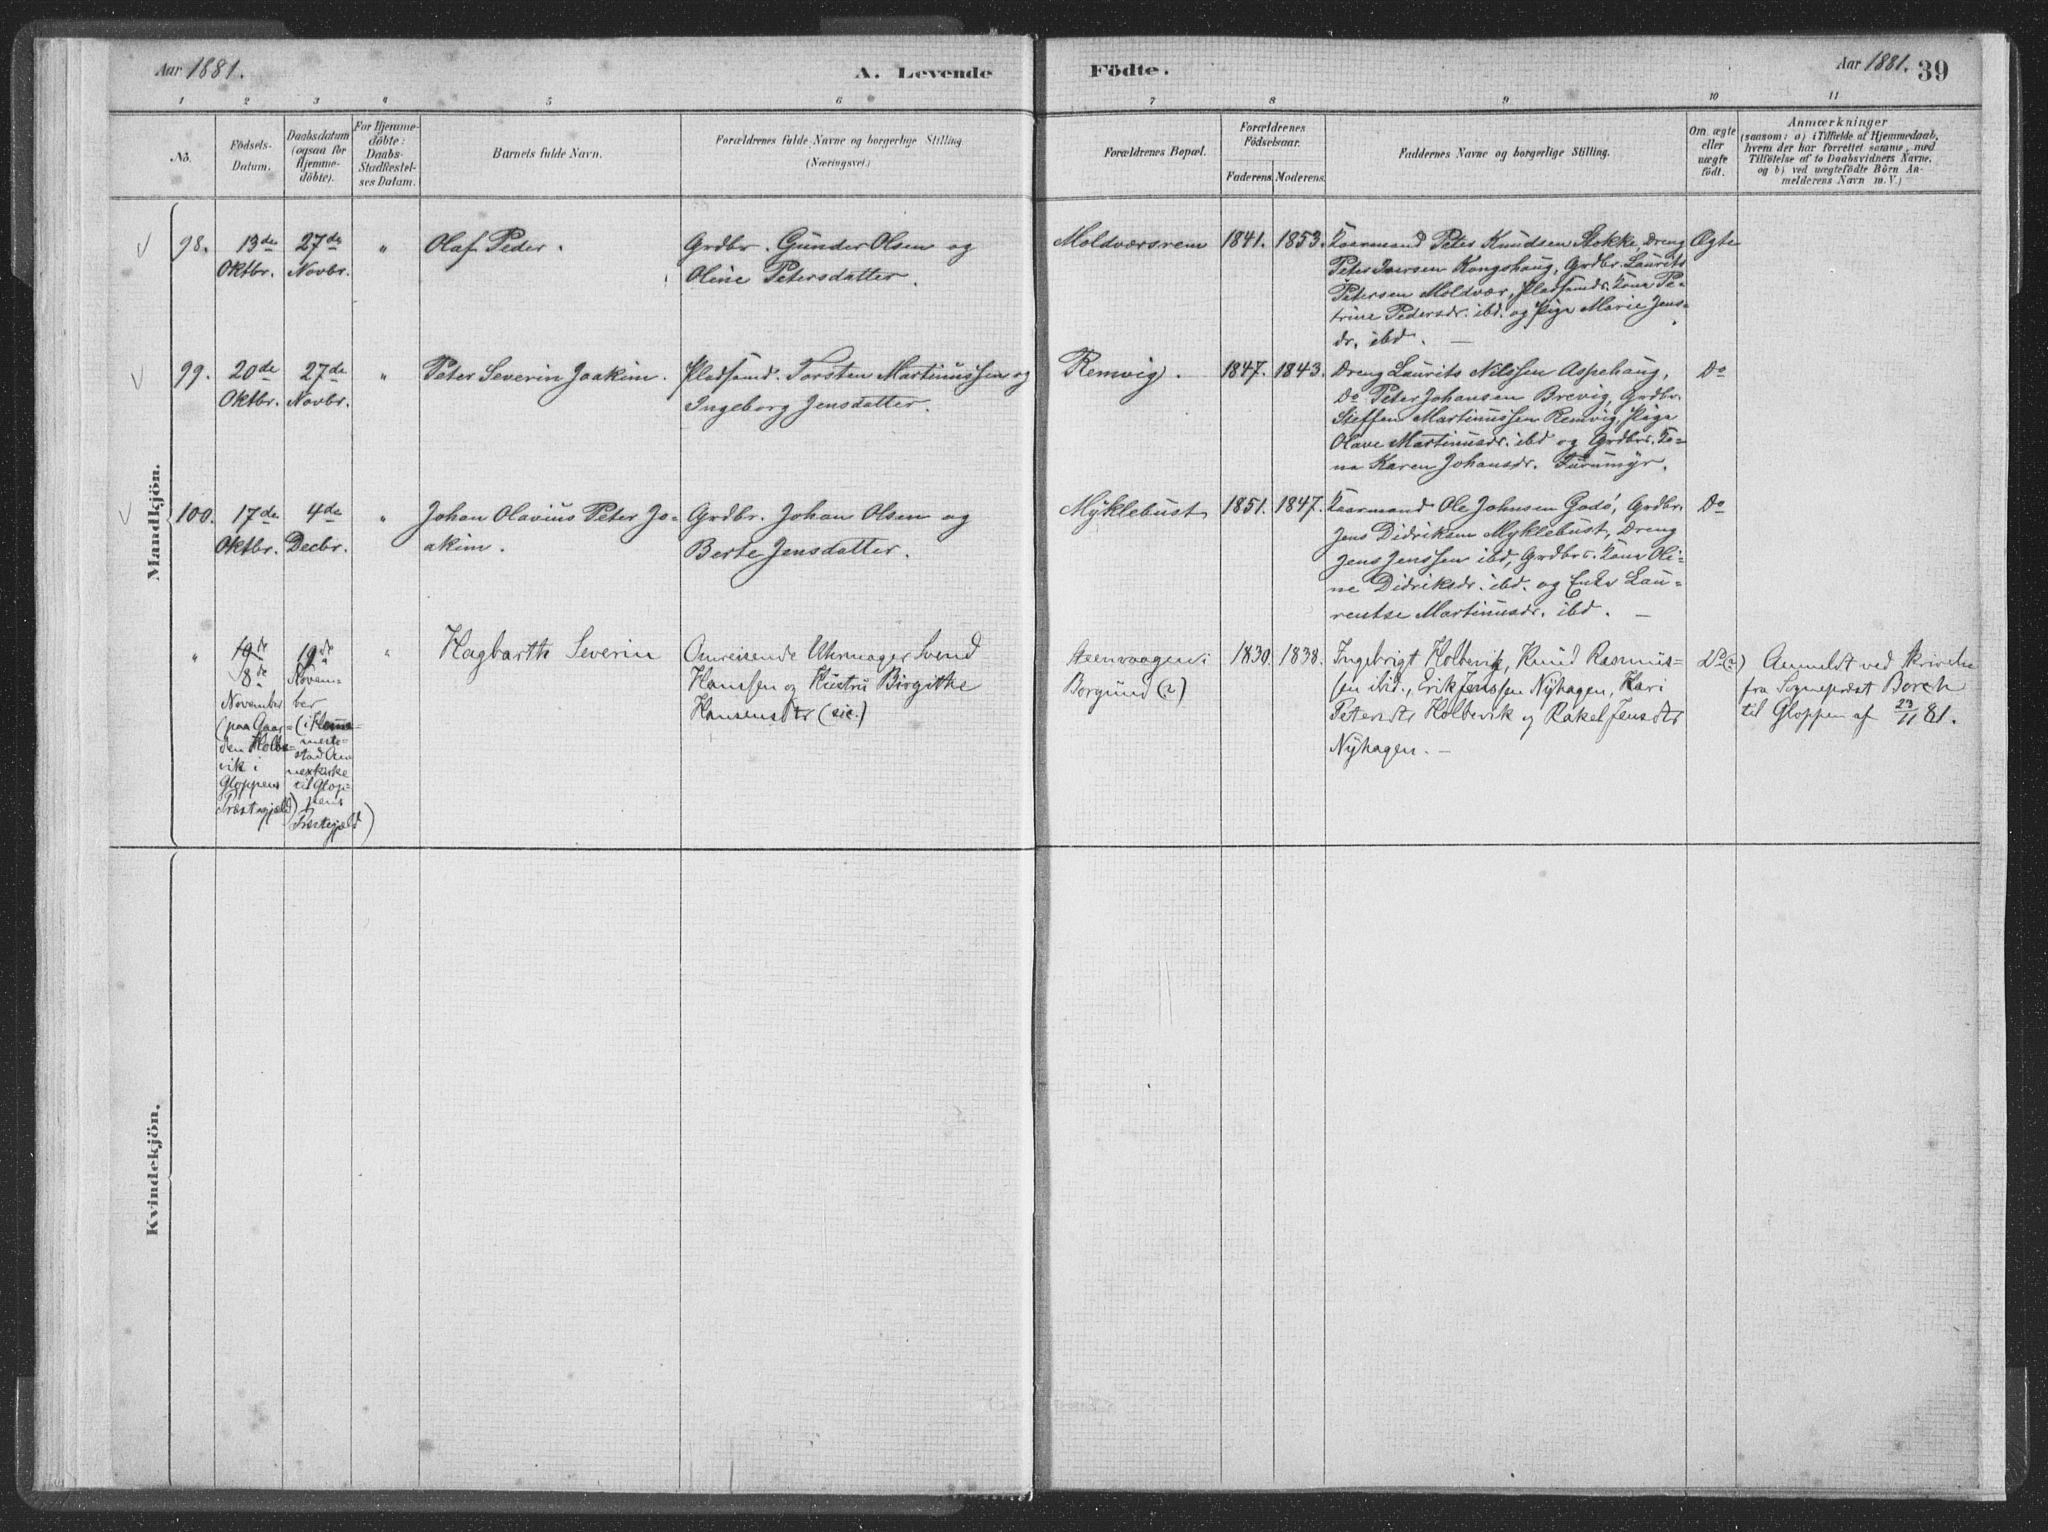 Aar 1881.
A. Levende
Födte.
Aar 1881.
39
1 2 3 4 5 6 7 8 9 10 11
No.
Födsels-
Datum.
Daabsdatum
(ogsaa for
Hjemme-
döbte).
For Hjemme-
döbte:
Daabs-
Stadfæstel-
ses Datum.
Barnets fulde Navn.
Forældrenes fulde Navne og borgerlige Stilling.
(Næringsvei.)
Forældrenes Bopæl.
Forældrenes
Födselsaar.
Faderens. Moderens.
Faddernes Navne og borgerlige Stilling.
Om ægte
eller
uægte
födt.
Anmærkninger
(saasom: a) i Tilfælde af Hjemmedaab,
hvem der har forrettet samme, med
Tilföielse af to Daabsvidners Navne,
og b) ved uægtefödte Börn An-
melderens Navn m. V.)
Mandkjön.
98.
13de
Oktbr.
27de
Novbr.
"
Olaf Peder.
Grdbr. Gunder Olsen og
Oline Petersdatter.
Moldværsrem
1841. 1853.
Kaarmand Peter Knudsen Stokke, Dreng
Peter Iversen Kongshaug, Grdbr. Laurits
Petersen Moldvær, Pladsmds. Kona Pe-
trine Pedersdr. ibd. og Pige Marie Jens-
dr. ibd.
Ægte
99.
20de
Oktbr.
27de
Novbr.
"
Peter Severin Joakim.
Pladsmd. Torsten Martinussen og
Ingeborg Jensdatter.
Remvig.
1847. 1843.
Dreng Laurits Nilssen Aspehaug,
Do Peter Johansen Brevig, Grdbr.
Steffen Martinussen Remvig, Pige
Olave Martinusdr. ibd og Grdbrs. Ko-
na Karen Johansdr. Furumyr.
Do
100.
17de
Oktbr.
4de
Decbr.
"
Johan Olavius Peter Jo-
akim.
Grdbr. Johan Olsen og
Berte Jensdatter.
Myklebust
1851. 1847.
Kaarmand Ole Johnsen Godø, Grdbr.
Jens Didriksen Myklebust, Dreng
Jens Jenssen ibd, Grdbrs. Kona Oli-
ne Didriksdr. ibd. og Enke Lau-
rentse Martinusdr. ibd.
Do
"
19de
8de
November
(paa Gaar-
den Holbe-
vik i
Gloppens
Præstegjæld)
19de
Novem-
ber
(i
stad An-
nexkirke
til Glop-
pens
Præstegjæld)
"
Hagbarth Severin
Omreisende Uhrmager Svend
Hanssen og Hustru Birgithe
Hansensdtr (sic.)
Steenvaagen i
Borgund (?)
1830. 1838.
Ingebrigt Holbevik, Knud Rasmus-
sen ibid., Erik Jenssen Nyhagen, Kari
Petersdtr Holbevik og Rakel Jensdtr
Nyhagen.
Do (?)
Anmeldt ved Skrivelse
fra Sognepræst Borch
til Gloppen af 23/11 81.
Kvindekjön.